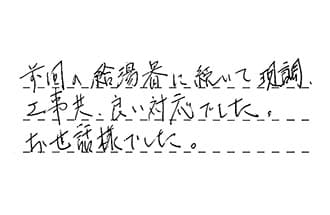 前回の給湯器に続いて現調、
工事共、良い対応でした。
お世話様でした。